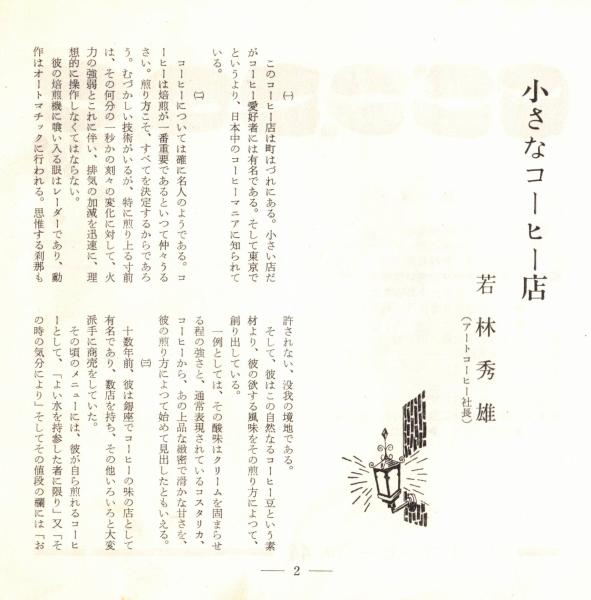 小さなコーヒー店
若林秀雄
(アートコーヒー社長)
(一)
このコーヒー店は町はづれにある。小さい店だ
がコーヒー愛好者には有名である。そして東京で
というより、日本中のコーヒーマニアに知られて
いる。
(二)
コーヒーについては確に名人のようである。コ
ーヒーは焙煎が一番重要であるといつて仲々うる
さい。煎り方こそ、すべてを決定するからであろ
う。むづかしい技術がいるが、特に煎り上る寸前
は、その何分の一秒かの刻々の変化に対して、火
力の強弱とこれに伴い、排気の加減を迅速に、理
想的に操作しなくてはならない。
彼の焙煎機に喰い入る眼はレーダーであり、動
作はオートマチックに行われる。思惟する刹那も
許されない、没我の境地である。
そして、彼はこの自然なるコーヒー豆という素
材より、彼の欲する風味をその煎り方によつて、
創り出している。
一例としては、その酸味はクリームを固まらせ
る程の強さと、通常表現されているコスタリカ、
コーヒーから、あの上品な緻密で滑かな甘さを、
彼の煎り方によつて始めて見出したともいえる。
(三)
十数年前、彼は銀座でコーヒーの味の店として
有名であり、数店を持ち、その他いろいろと大変
派手に商売をしていた。
その頃のメニューには、彼が自ら煎れるコーヒ
ーとして、「よい水を持参した者に限り」又「そ
の時の気分により」そしてその値段の欄には「お
— 2 —